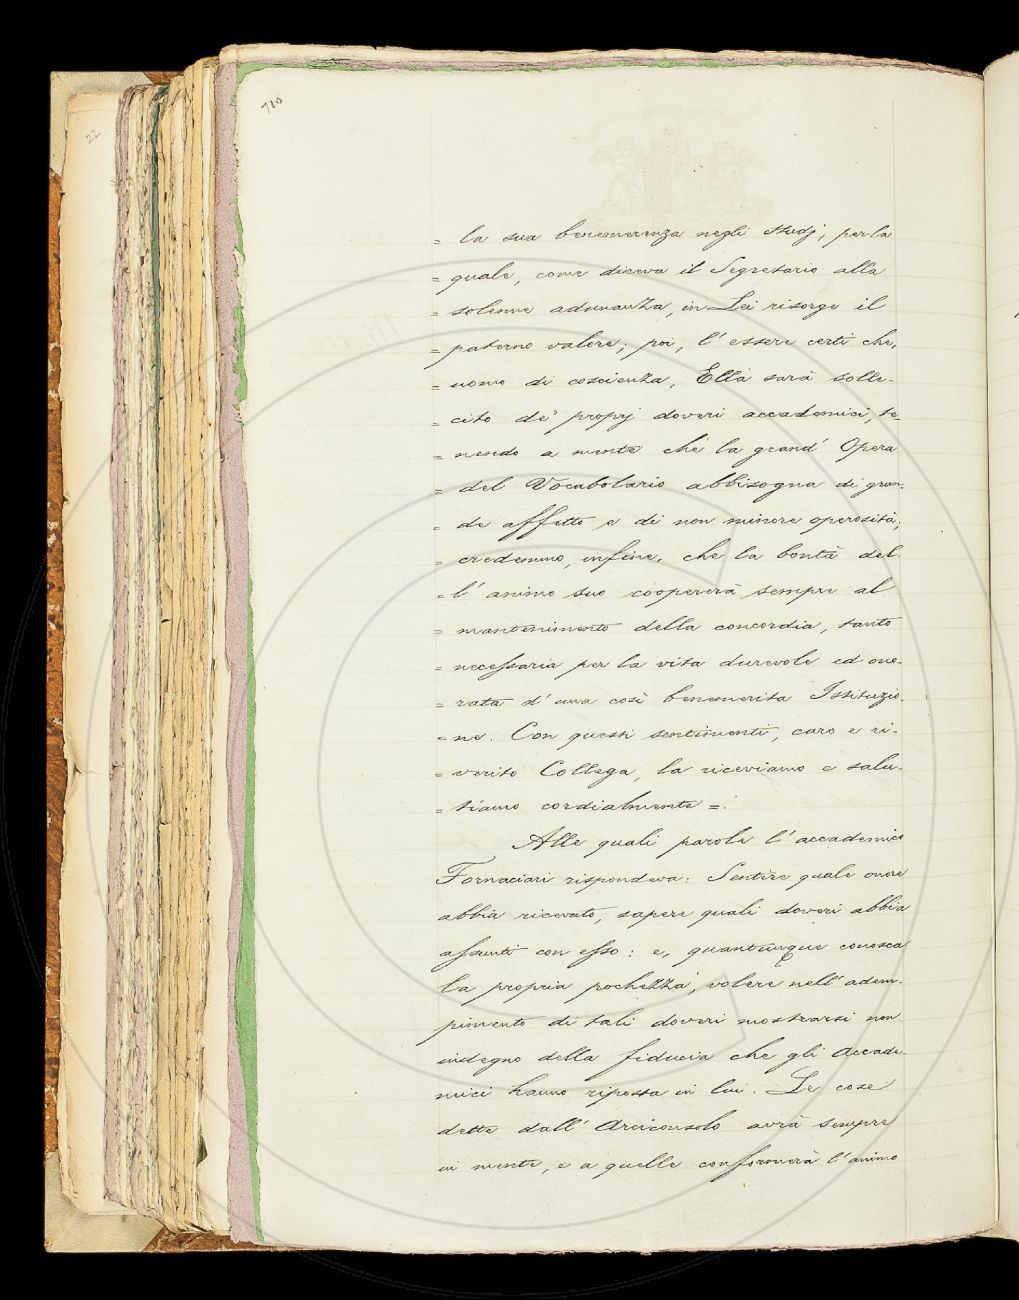 710
22
= la sua benemerenza negli studj, per la
= quale, come diceva il Segretario alla
= solenne adunanza, in Lei risorge il
= paterno valore; poi, l' essere certi che,
= uomo di coscienza, Ella sarà solle-
= cito de' proprj doveri accademici, te-
= nendo a mente che la grand' Opera
= del Vocabolario abbisogna di gran-
= de affetto e di non minore operosità;
= credemmo, infine, che la bontà del-
= l' animo suo coopererà sempre al
= mantenimento della concordia, tanto
= necessaria per la vita durevole ed ono-
= rata d' una così benemerita Istituzio-
= ne. Con questi sentimenti, caro e ri-
= verito Collega, la riceviamo e salu-
= tiamo cordialmente =.
Alle quali parole l' accademico
Fornaciari rispondeva: Sentire quale onore
abbia ricevuto, sapere quali doveri abbia
assunti con esso: e, quantunque conosca
la propria pochezza, volere nell' adem-
pimento di tali doveri mostrarsi non
indegno della fiducia che gli Accade-
mici hanno riposta in lui. Le cose
dette dall' Arciconsolo avrà sempre
in mente, e a quelle conformerà l' animo